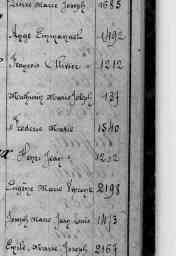 Pierre Marie Joseph 1685
Ange Emmanuel 1492
François Olivier 1212
Mathurin Marie Joseph 137
Frédéric Marie 1510
Henri Jean 1202
Eugène Marie Vincent 2198
Joseph Marie Jean Louis 1413
Emile Marie Joseph 2167